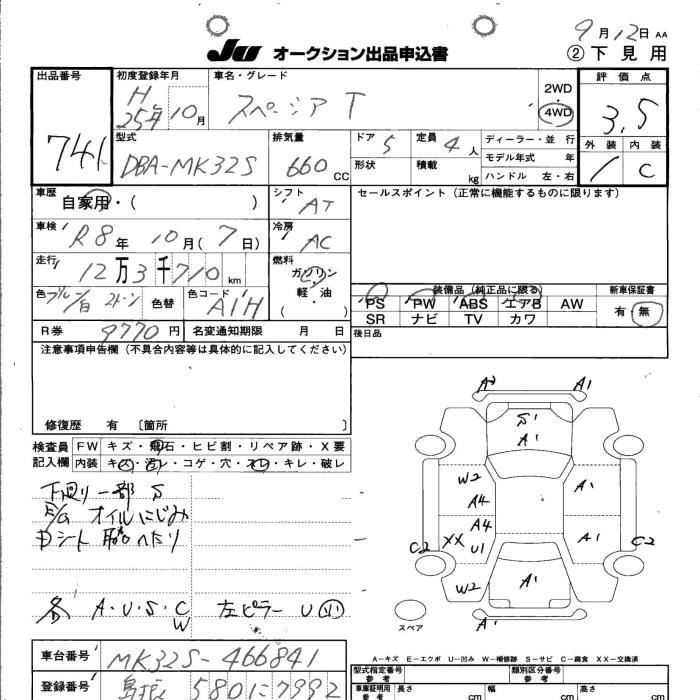 9月12日 AA
JU オークション出品申込書 ②下見用
出品番号 741
初度登録年月 H25年10月
車名・グレード スペーシア T
2WD・4WD
評価点 3.5
外装 1 内装 C
型式 DBA-MK32S
排気量 660cc
ドア 5
形状
定員 4人
積載 kg
ディーラー・並行
モデル年式 年
ハンドル 左・右
車歴 自家用・( )
シフト AT
セールスポイント(正常に機能するものに限ります)
車検 R8年10月(7日)
冷房 AC
走行 12万3千710km
燃料 ガソリン・軽・油( )
色 ブルー/白 2トーン 色替 色コード A1H
装備品(純正品に限る) 新車保証書
PS PW ABS エアB AW 有・無
SR ナビ TV カワ
R券 9770円 名変通知期限 月 日
後日品
注意事項申告欄(不具合内容等は具体的に記入してください)
修復歴 有 〔箇所 〕
検査員記入欄 FW キズ・飛石・ヒビ割・リペア跡・X要
内装 キズ・汚レ・コゲ・穴・スレ・キレ・破レ
下廻リ一部 S
E/G オイルにじみ
Dシート へたり
各 A・U・S・C W 左ピラー U
A1 S1 A1
W2 A4 A1
A4 XX U1 A1
C2 C2
W2 A1
A1
スペア
A-キズ E-エクボ U-凹み W-補修跡 S-サビ C-腐食 XX-交換済
車台番号 MK32S-466841
型式指定番号 参考
類別区分番号 参考
登録番号 島根 580 い 7992
車庫証明用 参考 長さ cm 幅 cm 高さ cm